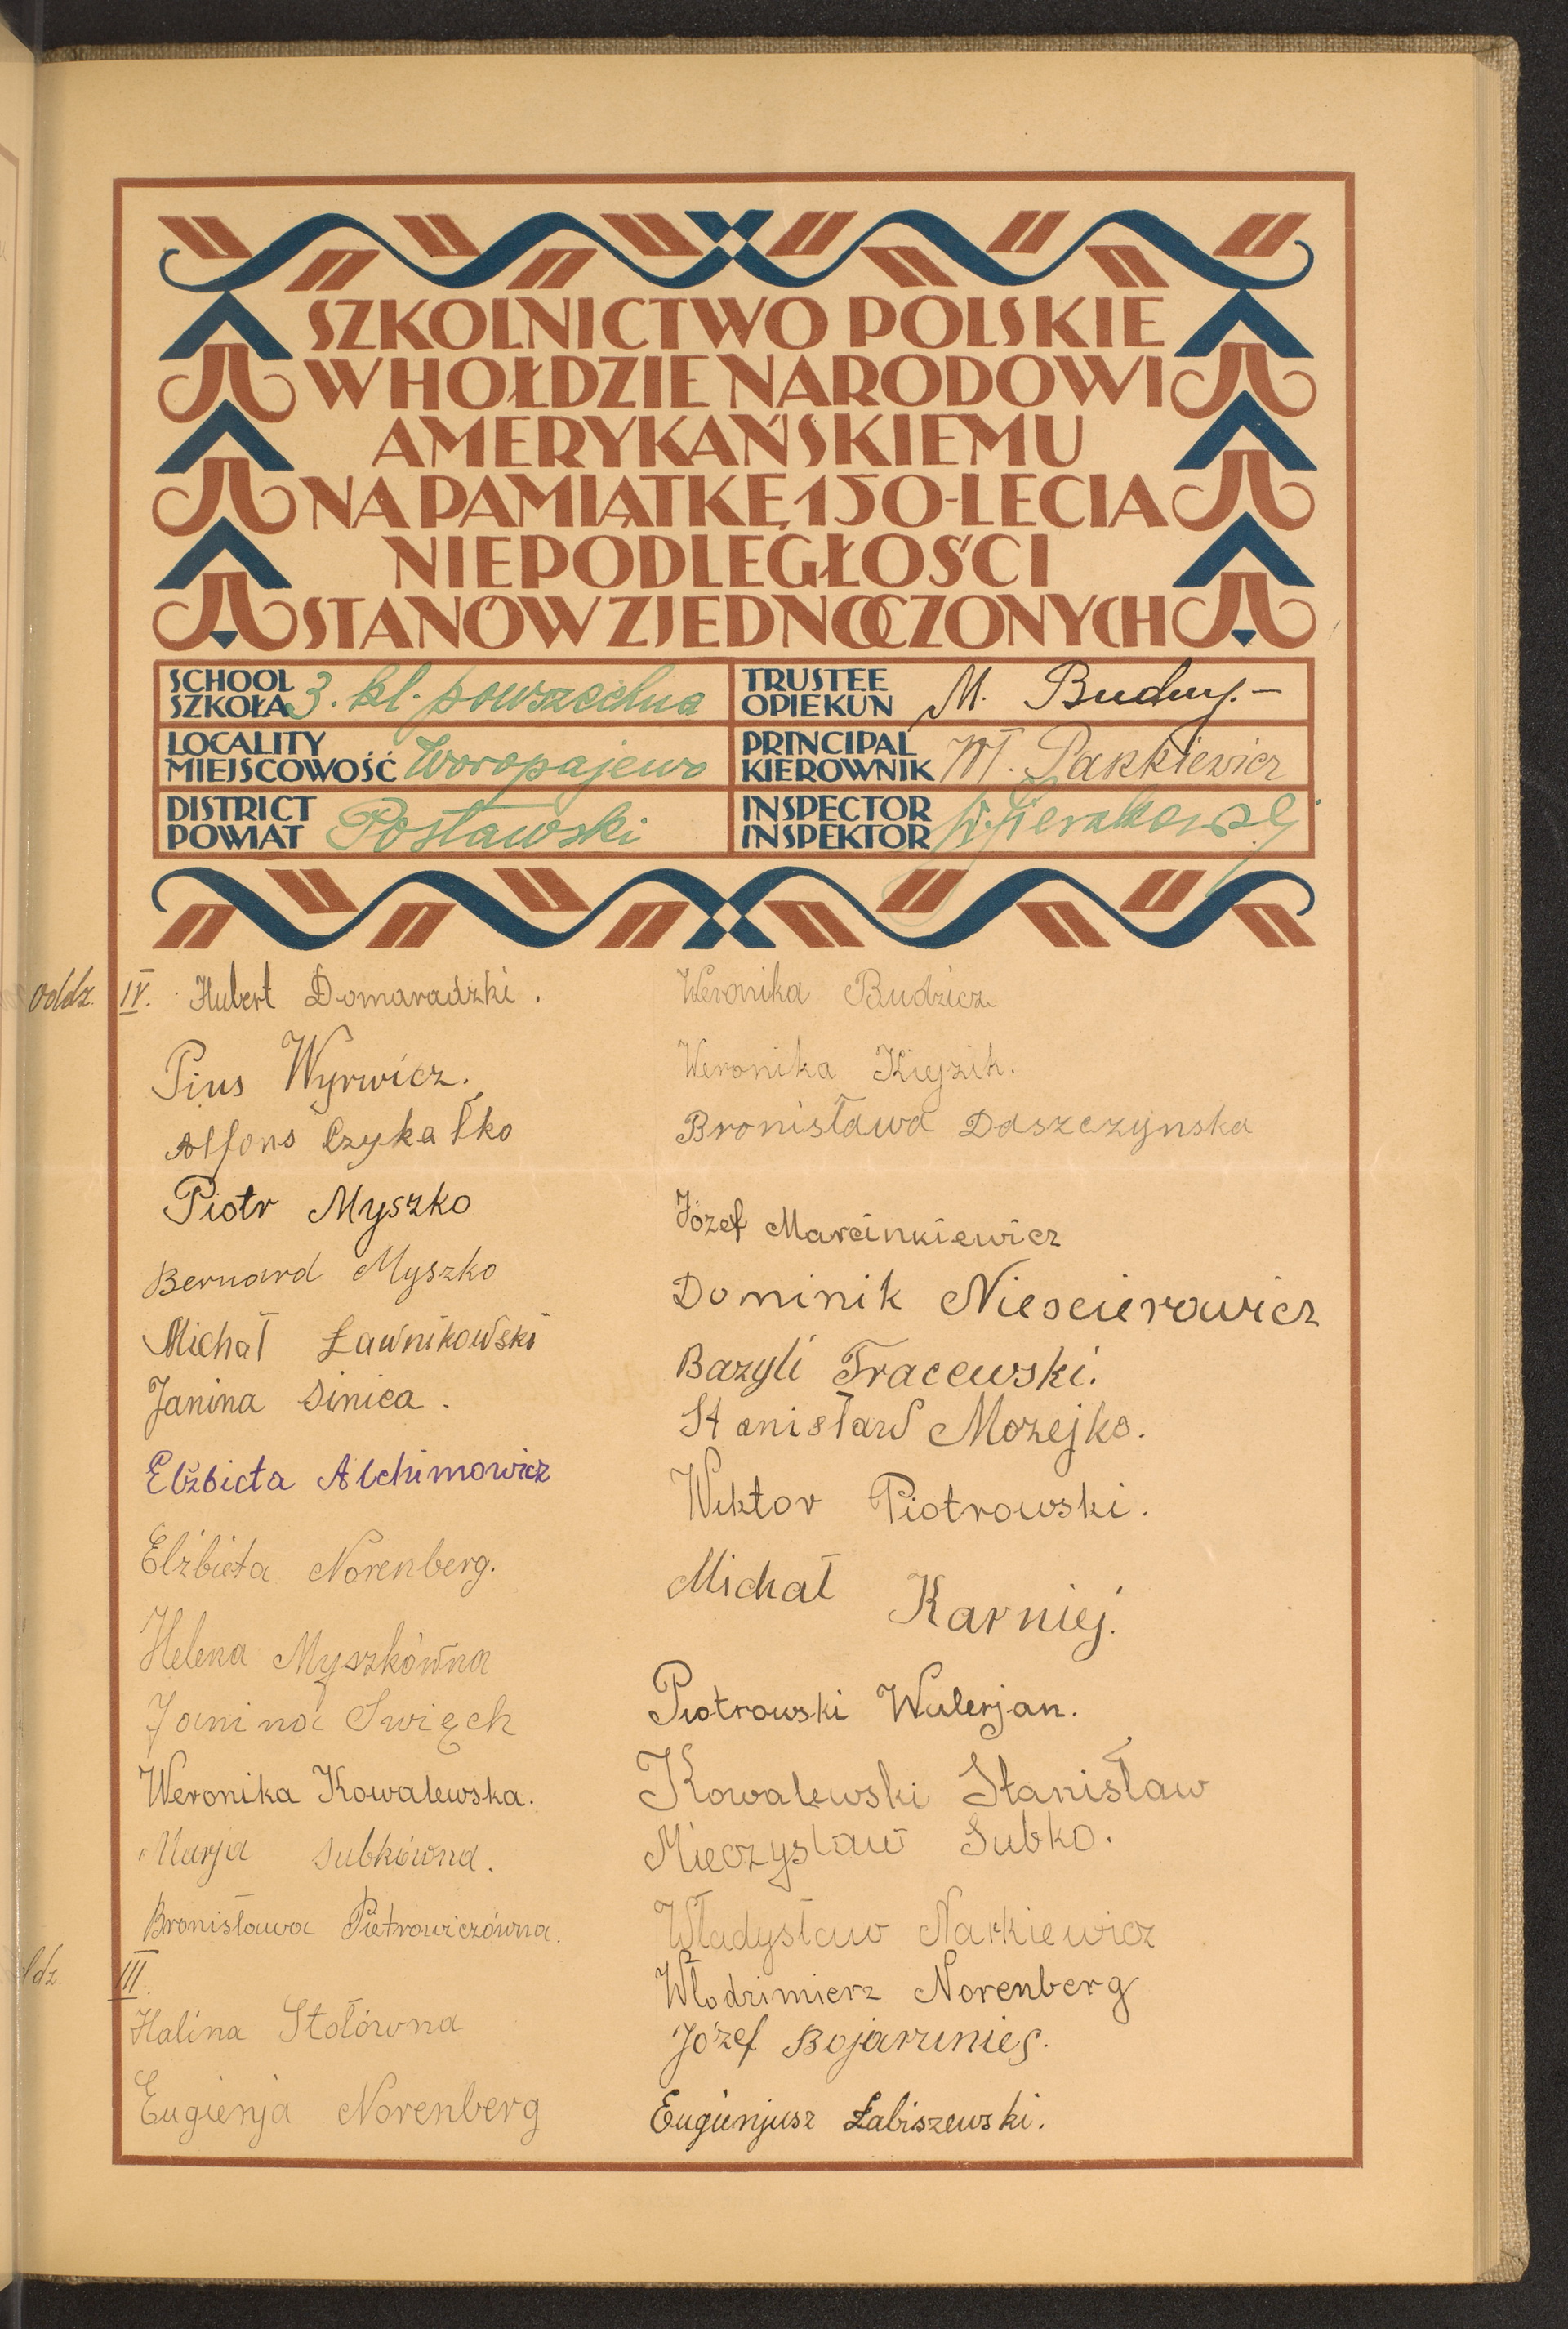 SZKOLNICTWO POLSKIE
W HOŁDZIE NARODOWI
AMERYKAŃSKIEMU
NA PAMIĄTKĘ 150-LECIA
NIEPODLEGŁOŚCI
STANÓW ZJEDNOCZONYCH
SCHOOL
SZKOŁA 3. kl. powszechna
LOCALITY
MIEJSCOWOŚĆ Woropajewo
DISTRICT
POWIAT Postawski
TRUSTEE
OPIEKUN M. Budny.-
PRINCIPAL
KIEROWNIK
INSPECTOR
INSPEKTOR
oddz. IV. Hubert Domaradzki.
Pius Wyrwicz.
Alfons Czykałko
Piotr Myszko
Bernard Myszko
Michał Ławnikowski
Janina Sinica.
Elżbieta Alchimowicz
Elżbieta Norenberg.
Helena Myszkówna
Janina Swięch
Weronika Kowalewska.
Marja Subkówna.
Bronisława Pietrowiczówna.
III.
Halina Stołówna
Eugienja Norenberg
Weronika Budzicz
Weronika Kiejzik.
Bronisława Daszczynska
Józef Marcinkiewicz
Dominik Niescierowicz
Bazyli Tracewski.
Stanisław Mozejko.
Wiktor Piotrowski.
Michał Karniej.
Piotrowski Walerjan.
Kowalewski Stanisław
Mieczysław Subko.
Władysław Narkiewicz
Włodzimierz Norenberg
Józef
Eugienjusz Łabiszewski.